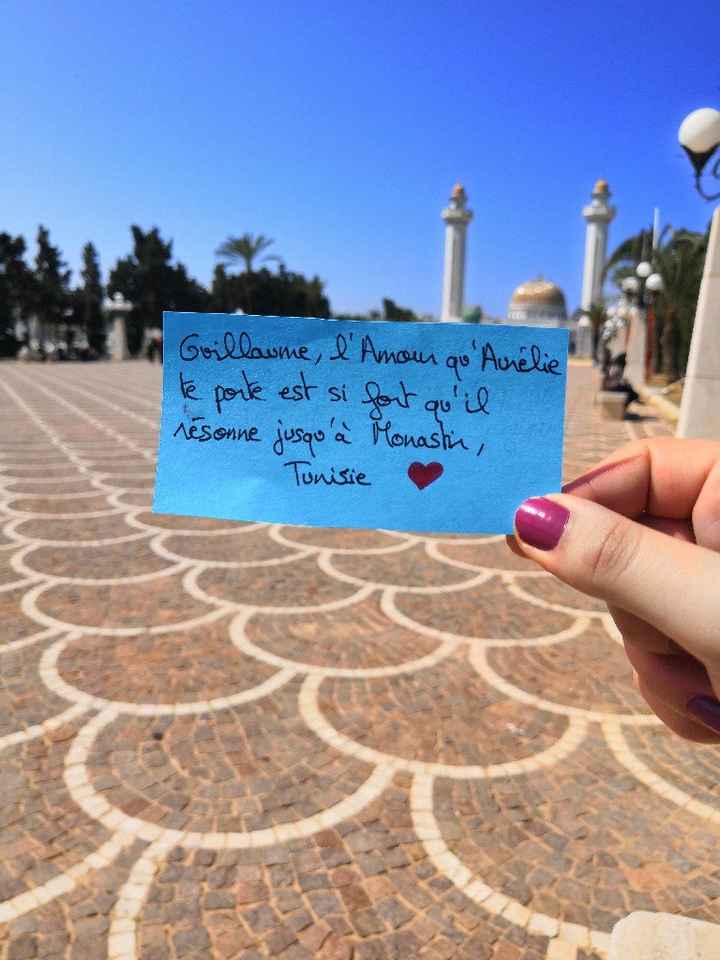 Guillaume, l'Amour qu'Aurélie
te porte est si fort qu'il
résonne jusqu'à Monastir,
Tunisie ♥